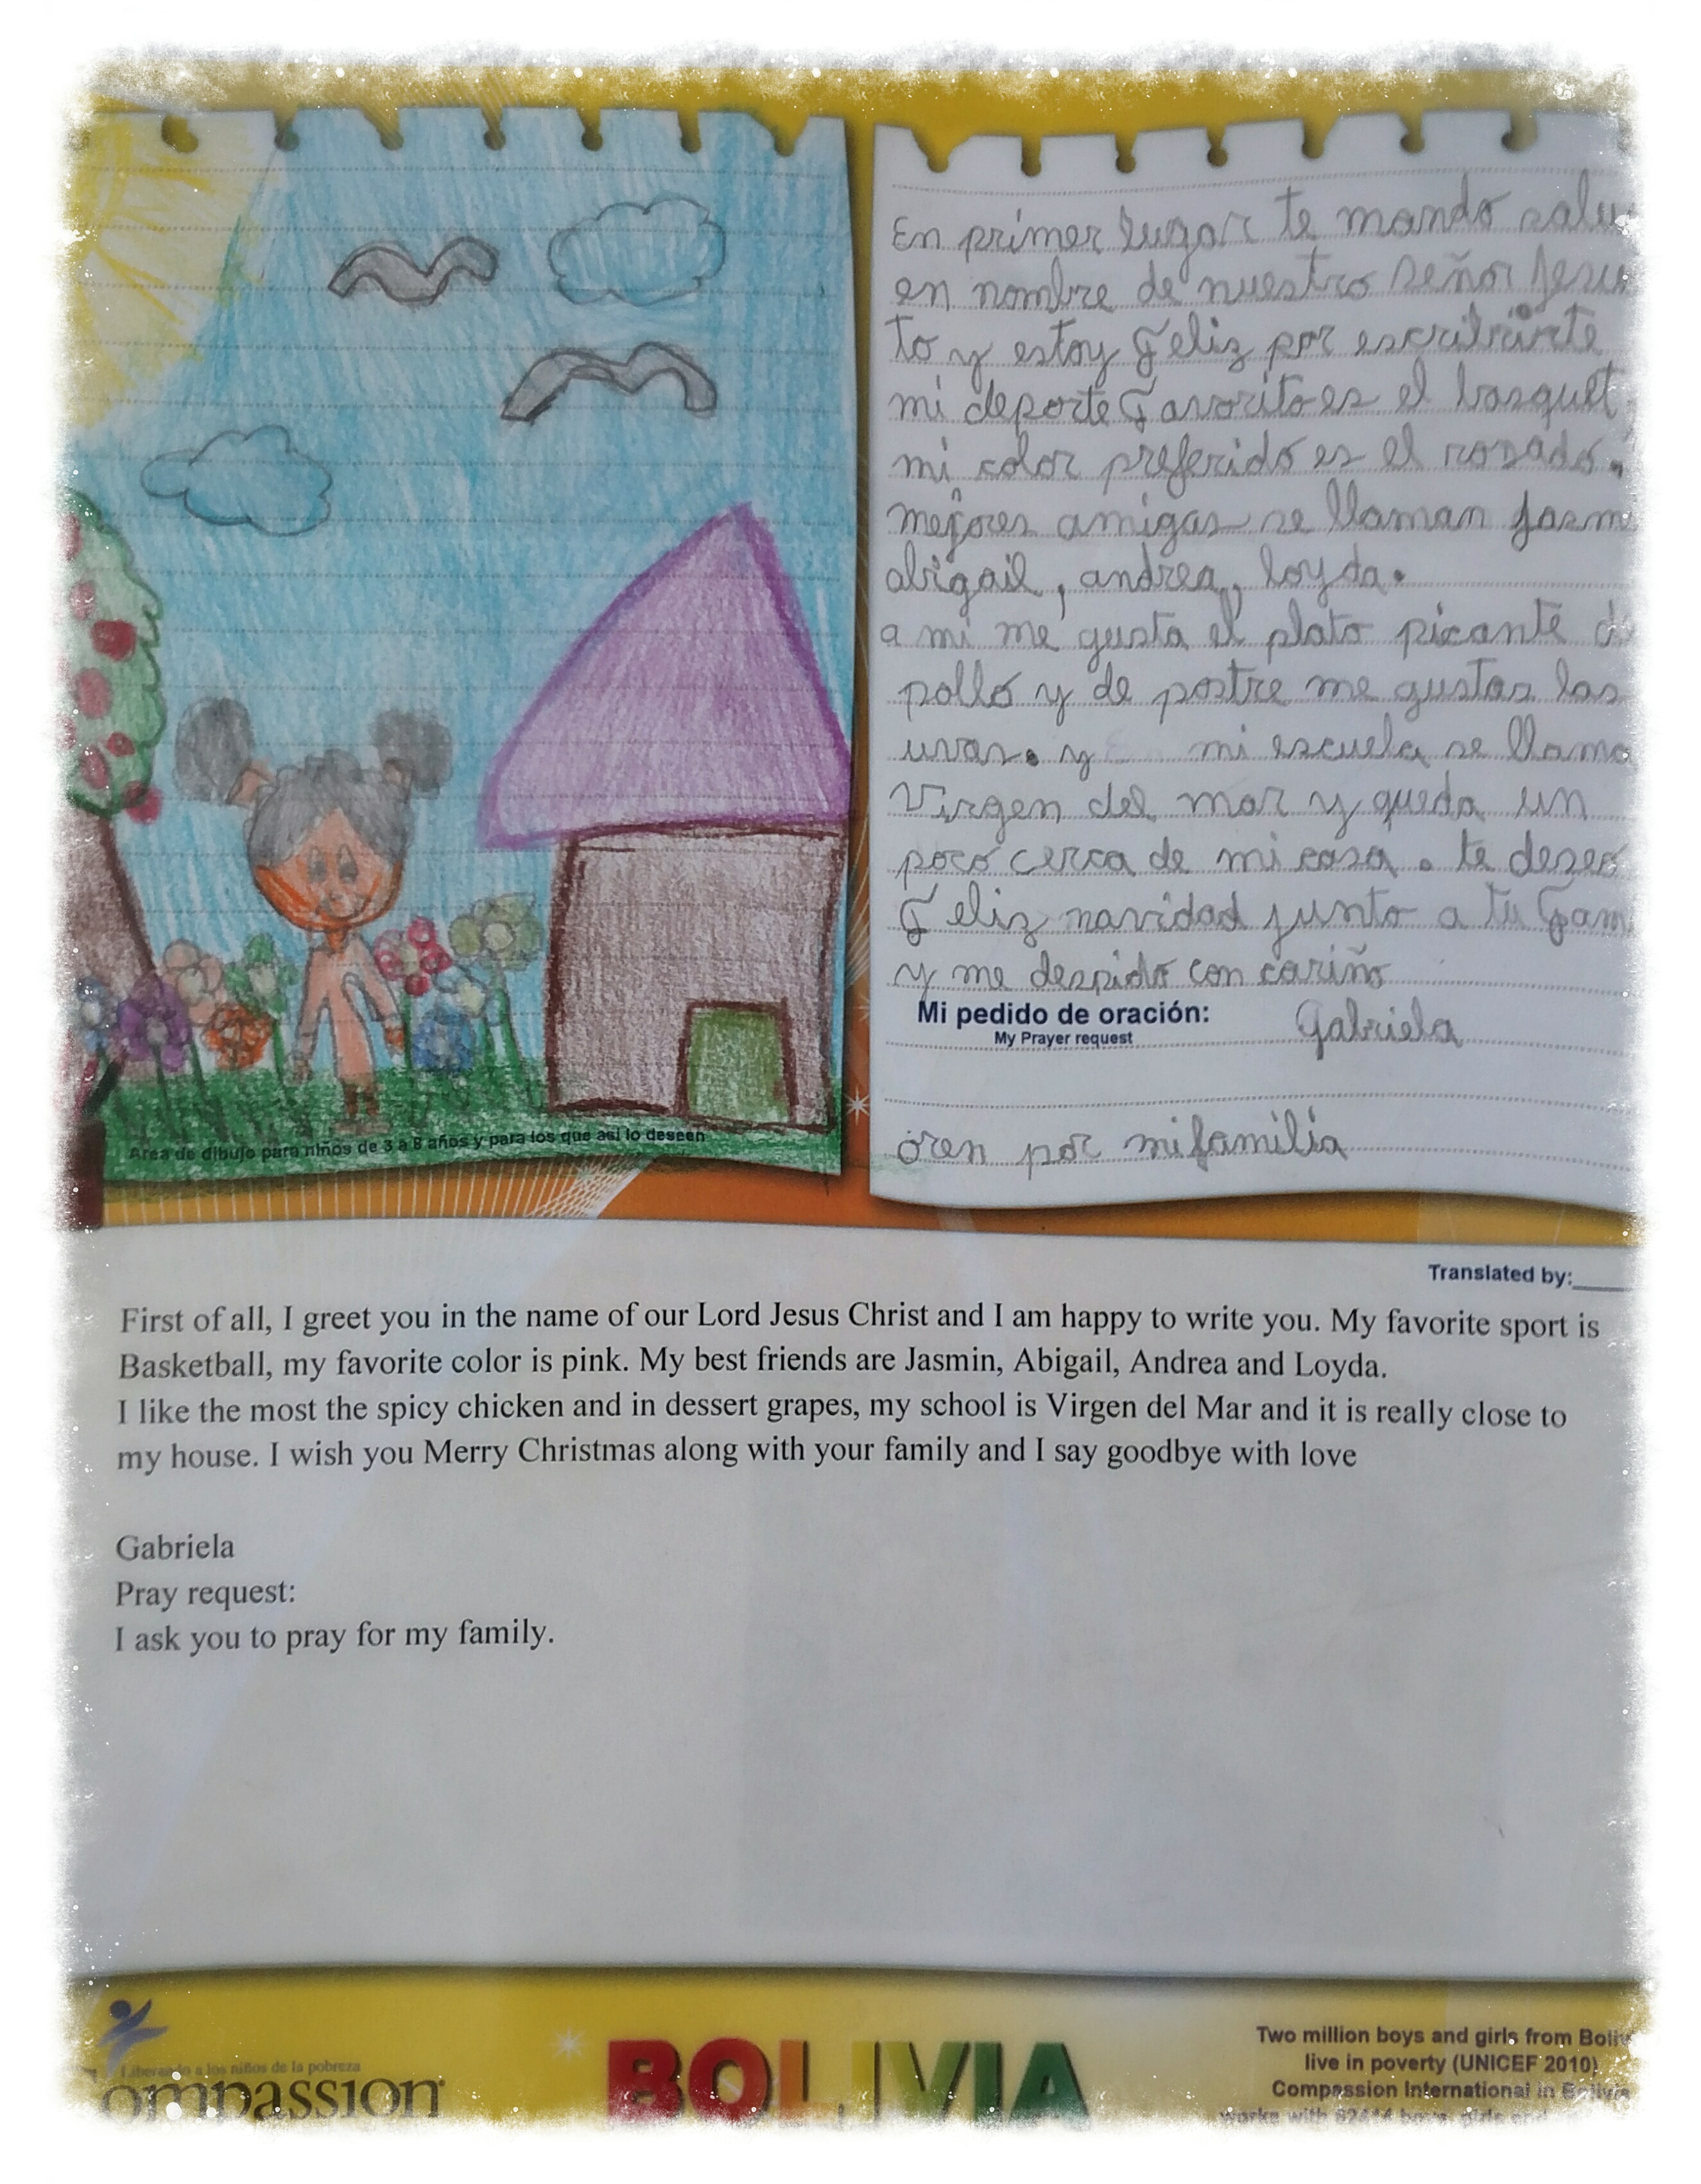 En primer lugar te mando
en nombre de nuestro Señor
to y estoy Feliz por escribirte
mi deporte Favorito es el basquet
mi color preferido es el rosado.
mejores amigas se llaman
abigail, andrea, loyda.
a mi me gusta el plato picante
pollo y de postre me gustas las
uvas. y mi escuela se llama
Virgen del mar y queda un
poco cerca de mi casa. te deseo
Feliz navidad junto a tu
y me despido con cariño
Mi pedido de oración:
My Prayer request
Gabriela
oren por mi familia
Area de dibujo para niños de 3 a 8 años y para los que asi lo deseen
Translated by:
First of all, I greet you in the name of our Lord Jesus Christ and I am happy to write you. My favorite sport is
Basketball, my favorite color is pink. My best friends are Jasmin, Abigail, Andrea and Loyda.
I like the most the spicy chicken and in dessert grapes, my school is Virgen del Mar and it is really close to
my house. I wish you Merry Christmas along with your family and I say goodbye with love
Gabriela
Pray request:
I ask you to pray for my family.
Liberando a los niños de la pobreza
Compassion
BOLIVIA
Two million boys and girls from
live in poverty (UNICEF 2010)
Compassion International in Bolivia
works with boys, girls